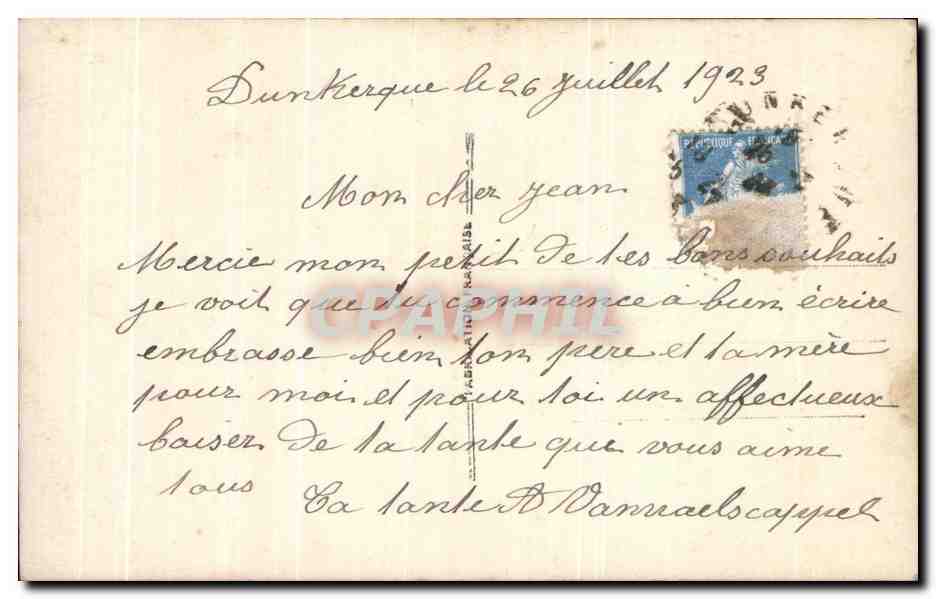 Dunkerque le 26 juillet 1923
RÉPUBLIQUE FRANÇAISE
Mon cher jean
Mercie mon petit de tes bons souhaits
je voit que tu commence à bien écrire
embrasse bien ton pere et ta mère
pour moi et pour toi un affectueux
baiser de ta tante qui vous aime
tous
Ta tante A Vanraelscappel
FABRICATION FRANÇAISE
CPAPHIL